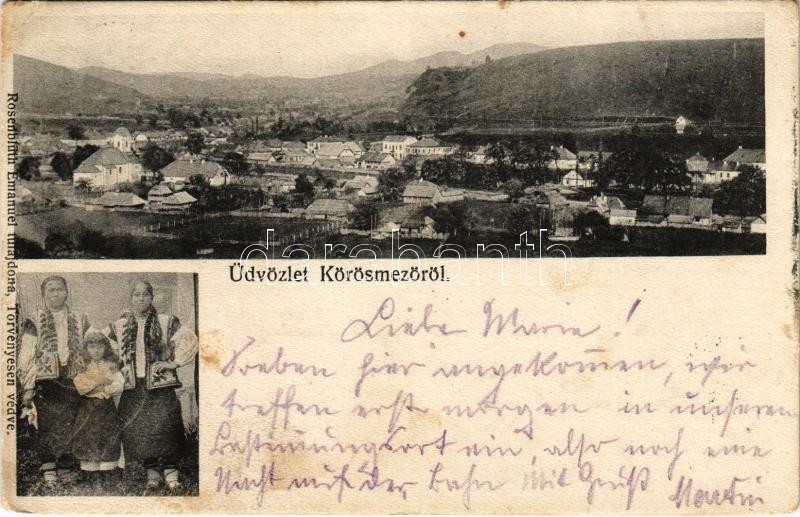 Rosenblüth Emánuel tulajdona, Törvényesen védve.
darabanth
Üdvözlet Körösmezöröl.
Liebe Marie!
Soeben hier angekommen, wir
treffen erst morgen in unseren
Bestimmungsort ein, also noch eine
Nacht auf der Bahn Mit Gruß
Martin